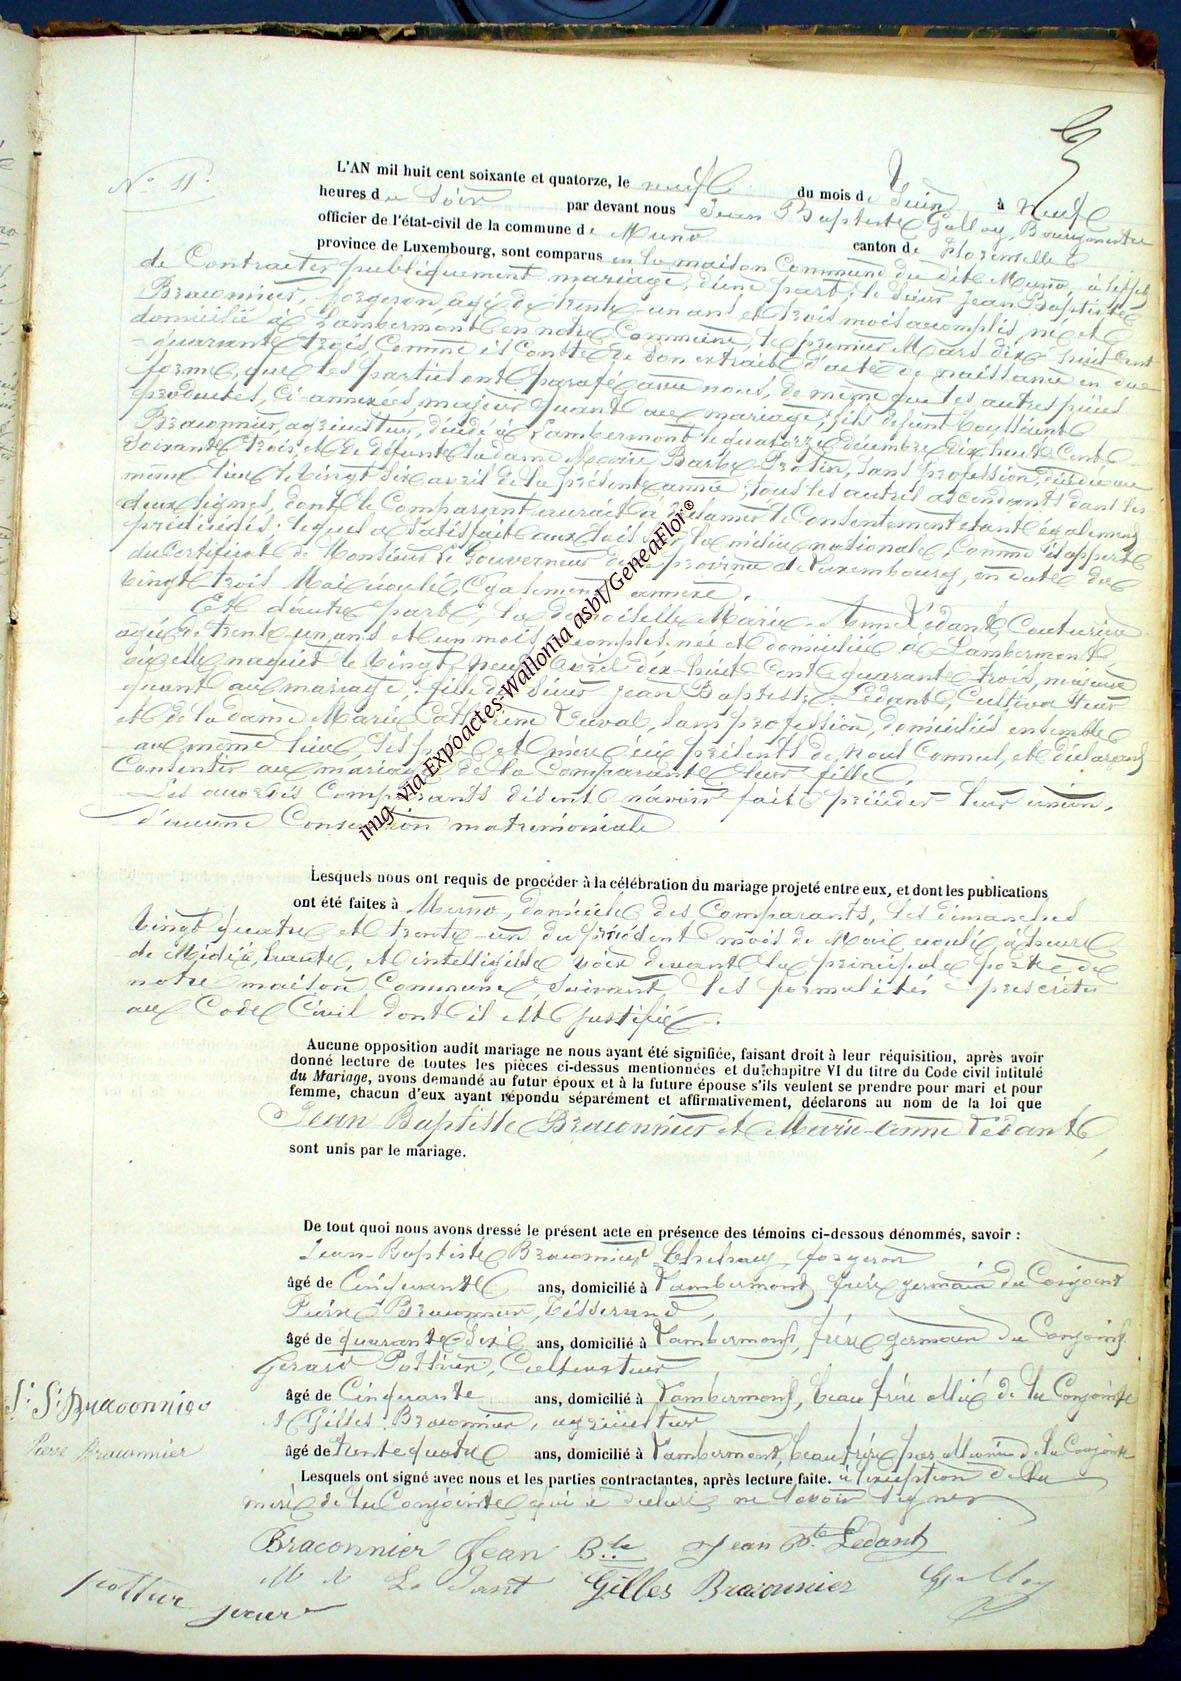 N° 11.
L'AN mil huit cent soixante et quatorze, le neuf du mois de Juin à neuf
heures du Soir par devant nous Jean Baptiste Galloy, Bourgmestre
officier de l'état-civil de la commune de Muno canton de Florenville
province de Luxembourg, sont comparus en la maison Commune du dit Muno à l'effet
de Contracter publiquement mariage, d'une part, le Sieur Jean Baptiste
Braconnier, forgeron, agé de trente-un ans et trois mois accomplis, né et
domicilié à Lambermont en notre Commune, le premier Mars dix huit cent
quarante trois, Comme il conste de son extrait d'acte de naissance en due
forme, que les parties ont parafé avec nous, de même que les autres pièces
produites, Ci-annexées, majeur quant au mariage, fils de défunt
Braconnier, agriculteur, décédé à Lambermont le quatorze décembre dix huit Cent
Soixante trois, et de défunte la dame Marie Barbe Protin, sans profession, décédée au
même lieu le vingt six avril de la présente année; tous les autres ascendants dans les
deux lignes, dont le Comparant aurait à réclamer le Consentement étant également
prédécédés; lequel a satisfait aux lois sur la milice nationale, Comme il appert
du Certificat de Monsieur le Gouverneur de la province de Luxembourg, en date du
vingt trois Mai écoulé, Egalement annexé.
Et d'autre part, la demoiselle Marie-Anne Lédant, Couturière
agée de trente-un ans et un mois accomplis, née et domiciliée à Lambermont
où elle naquit le vingt neuf Avril dix-huit Cent quarante trois, majeure
quant au mariage; fille du Sieur Jean Baptiste Lédant, Cultivateur
et de la dame Marie Catherine Duval, sans profession, domiciliés ensemble
au même lieu, Ses père et mère ici présents de Nous Connus, et déclarant
Consentir au mariage de la Comparante leur fille.
Les susdits Comparants disent n'avoir fait précéder leur union,
d'aucune Convention matrimoniale
Lesquels nous ont requis de procéder à la célébration du mariage projeté entre eux, et dont les publications
ont été faites à Muno, domicile des Comparants, les dimanches
vingt quatre et trente-un du précédent mois de Mai écoulé, à heure
de Midi à haute, et intelligible voix devant la principale porte de
notre maison Commune Suivant les formalités prescrites
au Code Civil dont il est justifié.
Aucune opposition audit mariage ne nous ayant été signifiée, faisant droit à leur réquisition, après avoir
donné lecture de toutes les pièces ci-dessus mentionnées et du chapitre VI du titre du Code civil intitulé
du Mariage, avons demandé au futur époux et à la future épouse s'ils veulent se prendre pour mari et pour
femme, chacun d'eux ayant répondu séparément et affirmativement, déclarons au nom de la loi que
Jean Baptiste Braconnier et Marie-Anne Lédant,
sont unis par le mariage.
De tout quoi nous avons dressé le présent acte en présence des témoins ci-dessous dénommés, savoir :
Jean-Baptiste Braconnier forgeron
âgé de Cinquante ans, domicilié à Lambermont, frère germain du Conjoint
Pierre Braconnier, Tisserand,
âgé de quarante six ans, domicilié à Lambermont, frère germain du Conjoint
Gérard Pothier, Cultivateur
âgé de Cinquante ans, domicilié à Lambermont, beau frère allié de la Conjointe
et Gilles Braconnier, agriculteur
âgé de trente quatre ans, domicilié à Lambermont, beau frère par alliance de la Conjointe
Lesquels ont signé avec nous et les parties contractantes, après lecture faite. à l'exception de la
mère de la Conjointe qui a déclaré ne Savoir signer
Braconnier Jean Bte Jean Bte Ledant
M A Ledant Gilles Braconnier Galloy
J. B. Braconnier
Pierre Braconnier
img via Expoactes-Wallonia asbl/GeneaFlor®